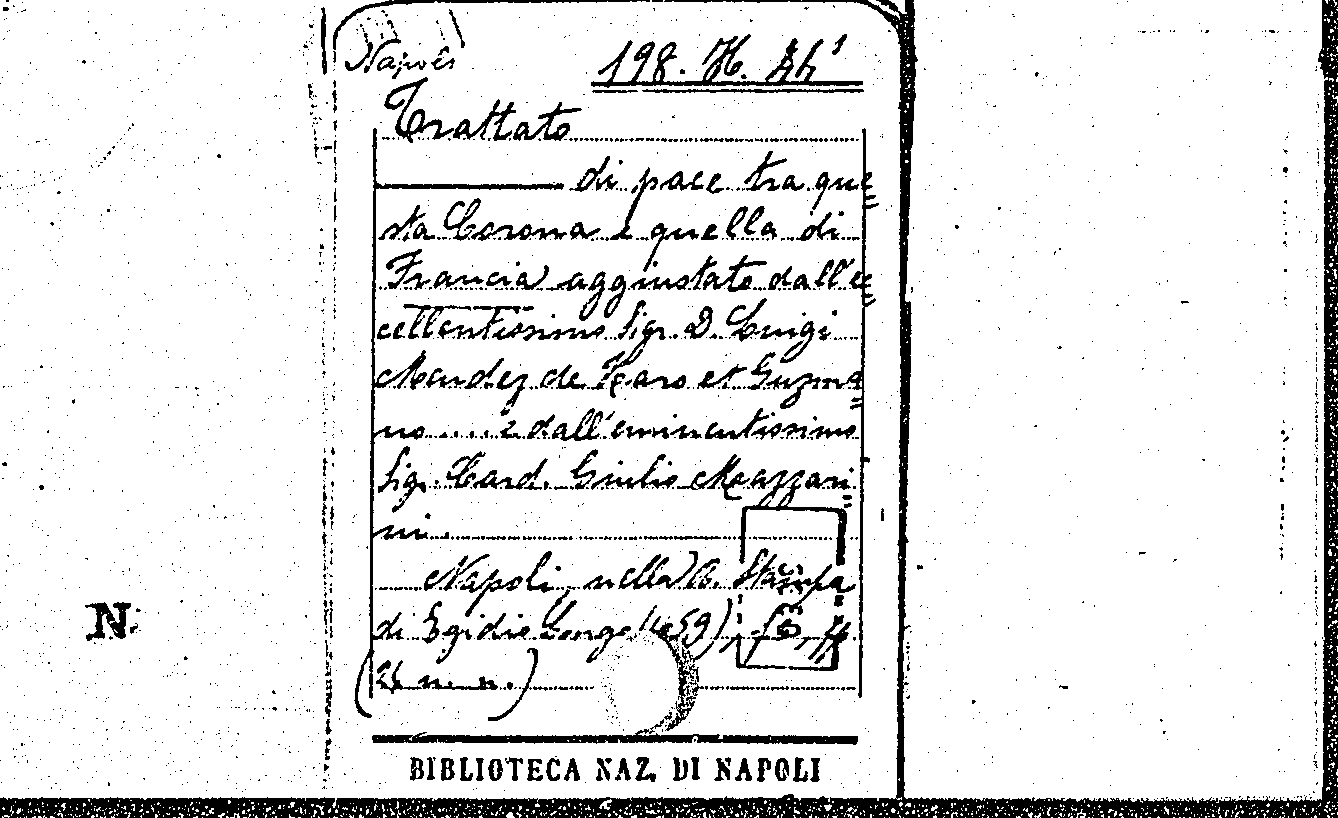 Napoli
198. H.
Trattato
di pace tra que=
sta Corona e quella di
Francia aggiustato dall'ec=
cellentissimo Sigr. D. Luigi
Mendez de Haro et Guzma=
no .... e dall'eminentissimo
Sig. Card. Giulio Mazzari=
ni.
Napoli, nella R. Stampa
di Egidio Longo (1659),
n. n.)
N.
BIBLIOTECA NAZ. DI NAPOLI